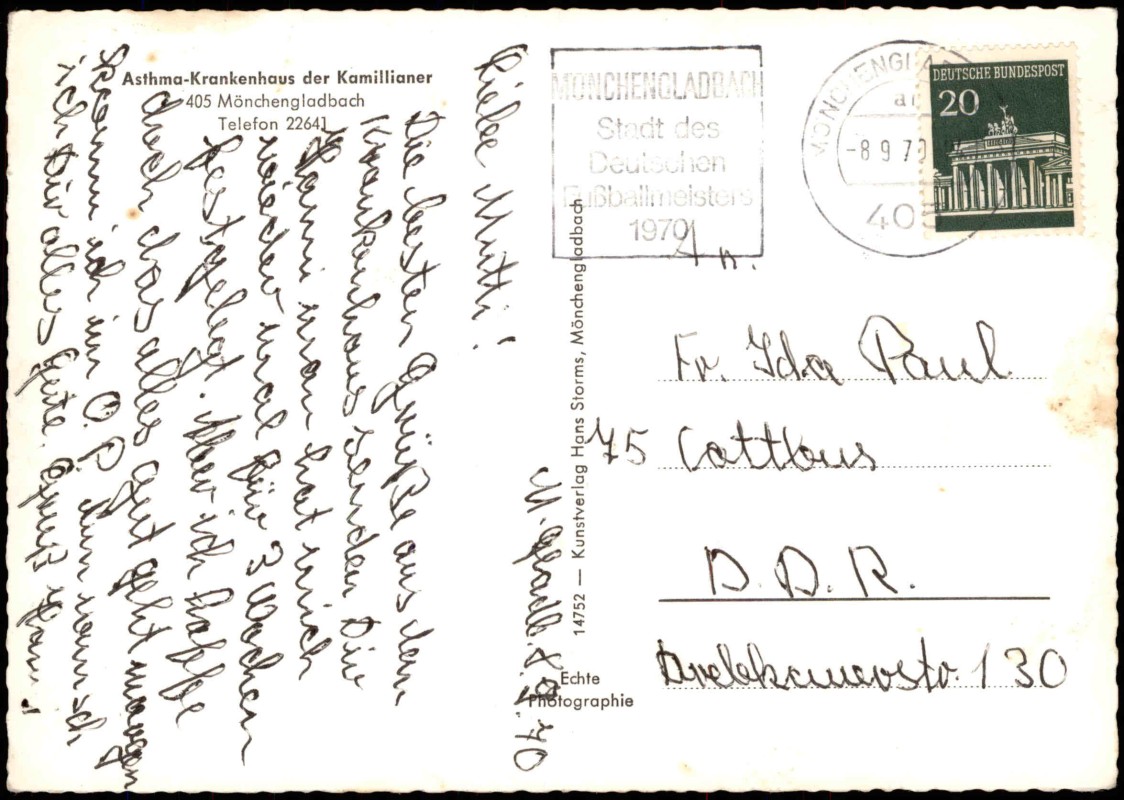 Asthma-Krankenhaus der Kamillianer
405 Mönchengladbach
Telefon 22641
M. gladb. 8.9.70
Liebe Mutti!
Die besten Grüße aus dem
Krankenhaus sendet Dir
Hanni man hat mich
wieder mal für 3 Wochen
festgelegt. Aber ich hoffe
doch das alles gut geht morgen
komm ich im O.P. nun wünsch
ich Dir alles Gute. Gruß Hanni
14752 — Kunstverlag Hans Storms, Mönchengladbach
Echte
Photographie
MÖNCHENGLADBACH
Stadt des
Deutschen
Fußballmeisters
1970
MÖNCHENGLA
-8 9 70
405
DEUTSCHE BUNDESPOST
20
An.
Fr. Ida Paul
75 Cottbus
D.D.R.
Drebkauerstr. 130